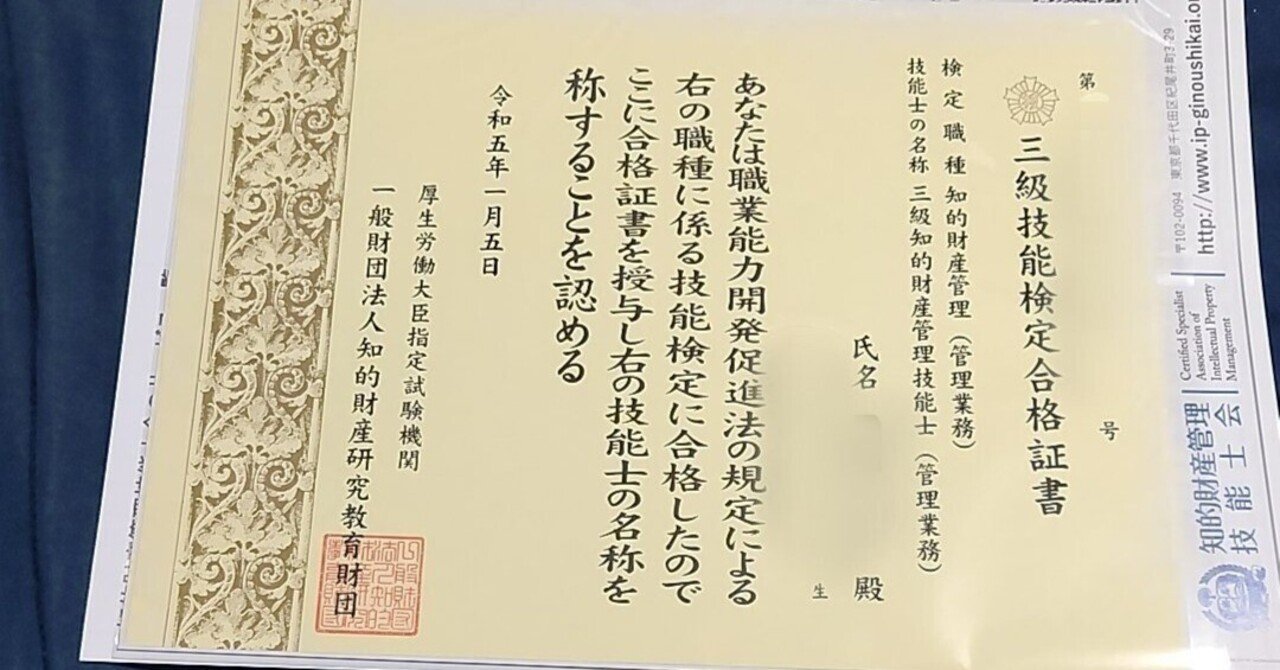 第 号
三級技能検定合格証書
検定職種 知的財産管理(管理業務)
技能士の名称 三級知的財産管理技能士(管理業務)
氏名 殿
生
あなたは職業能力開発促進法の規定による
右の職種に係る技能検定に合格したので
ここに合格証書を授与し右の技能士の名称を
称することを認める
令和五年一月五日
厚生労働大臣指定試験機関
一般財団法人知的財産研究教育財団
〒102-0094 東京都千代田区紀尾井町3-29
http://www.ip-ginoushikai.or
Certified Specialist
Association of
Intellectual Property
Management
知的財産管理
技能士会